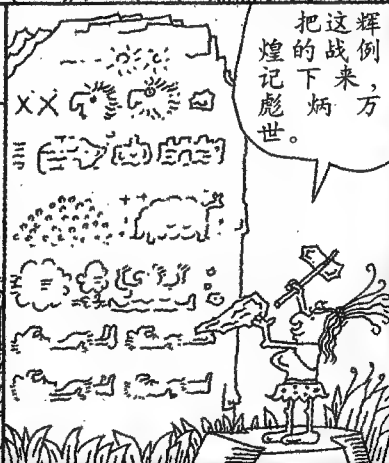 把这辉
煌的战例
记下来，
彪炳万
世。